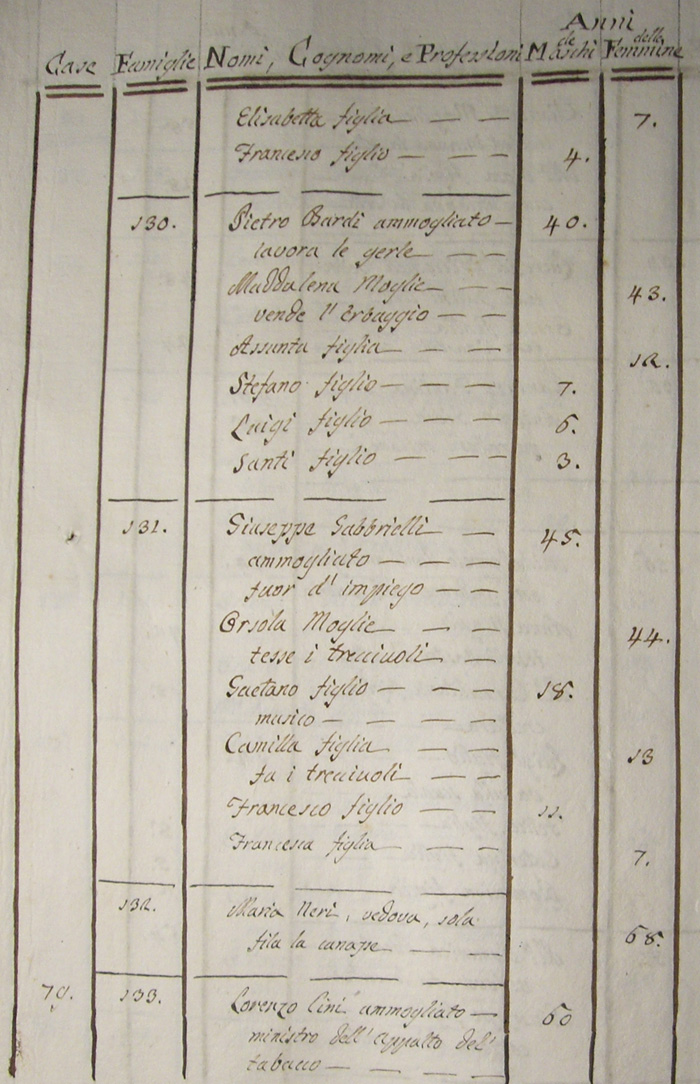 Anni
Case Famiglie Nomi, Cognomi, e Professioni de Maschi delle Femmine
Elisabetta figlia — — — 7.
Francesco figlio — — — 4.
130. Pietro Bardi ammogliato — 40.
lavora le gerle — —
Maddalena Moglie — — — 43.
vende l' Erbaggio — —
Assunta figlia — — — 12.
Stefano figlio — — — 7.
Luigi figlio — — — 6.
Santi figlio — — — 3.
131. Giuseppe Gabbrielli — — 45.
ammogliato — — —
fuor d' impiego — —
Orsola Moglie — — 44.
tesse i trecciuoli — —
Gaetano figlio — — — 18.
musico — — — —
Camilla figlia — — 13
fa i trecciuoli — —
Francesco figlio — — 11.
Francesca figlia — — — 7.
132. Maria Neri, vedova, sola 68.
fila la canape — —
133. Lorenzo Cini ammogliato — 60
ministro dell' appalto del'
tabacco — — —